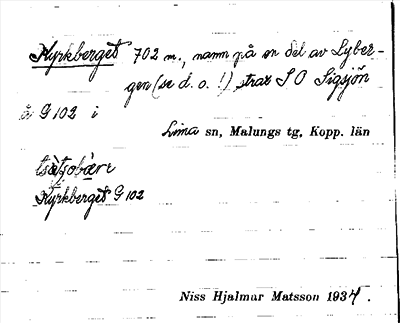 Kyrkberget 702 m., namn på en del av Lyber-
gen (se d. o. !) strax S O Sigsjön
å G 102 i
Lima sn, Malungs tg, Kopp. län
Kyrkberget G 102
Niss Hjalmar Matsson 1934.